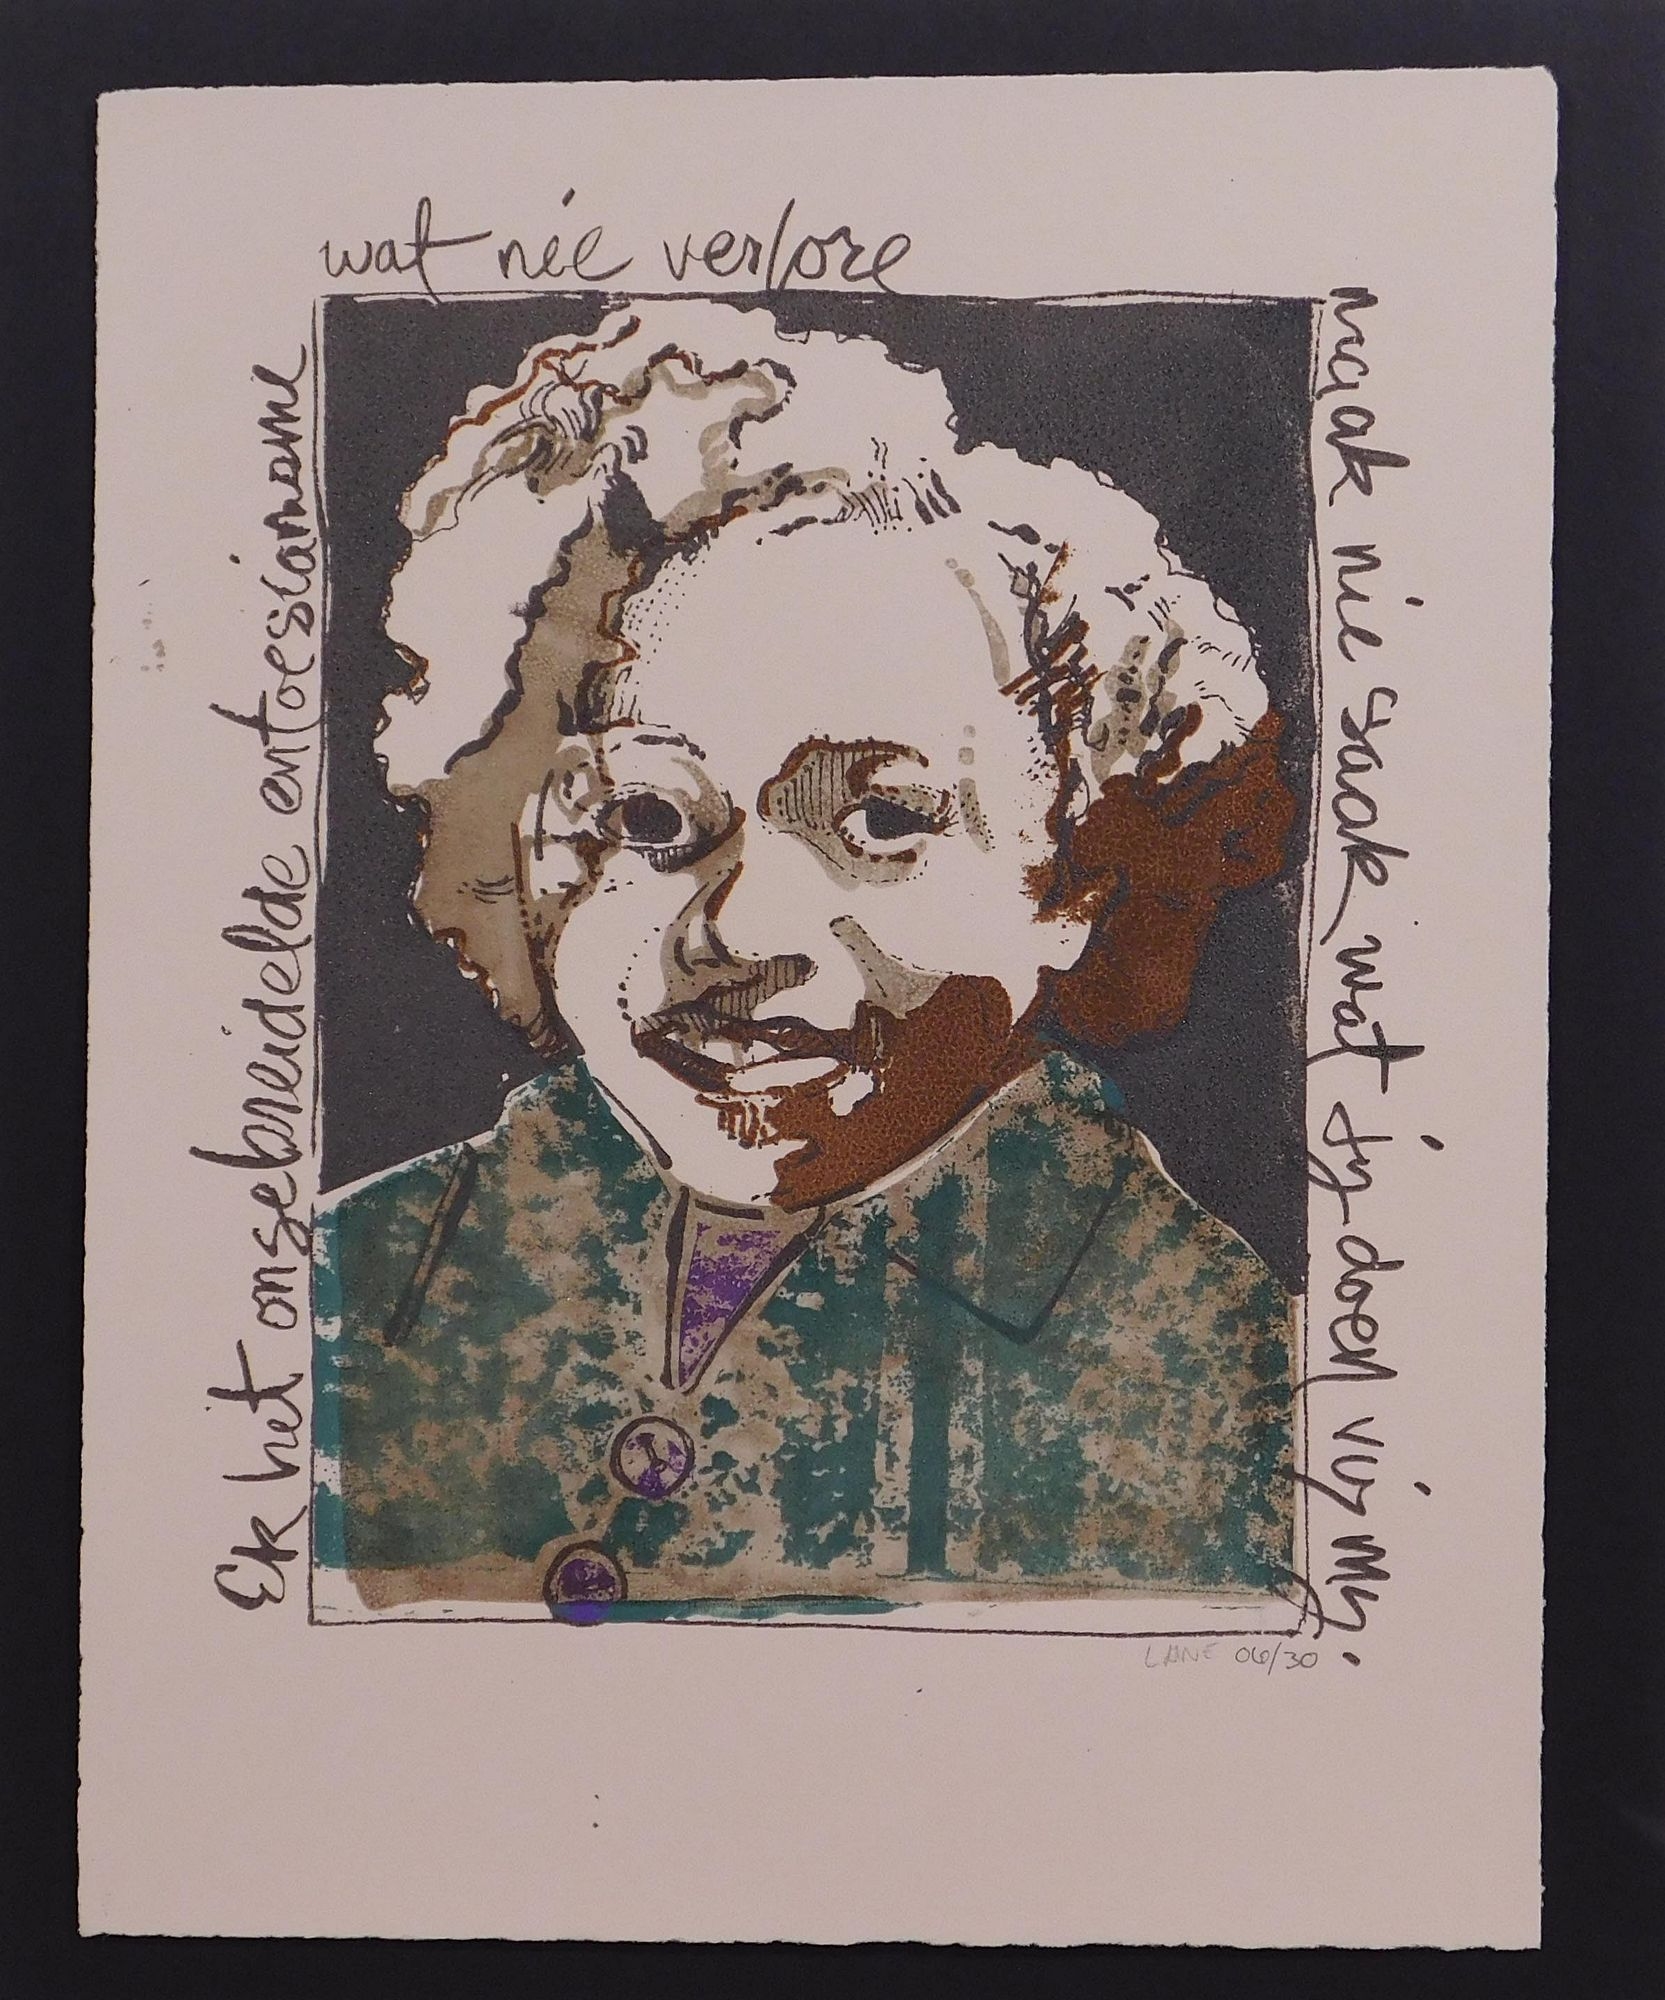 Ek het onsebreidelde entoesiasme
wat nie verlore
maak nie saak wat jy doen vir my.
LANE 06/30